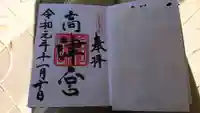 奉拝
高津宮
令和元年十一月十日